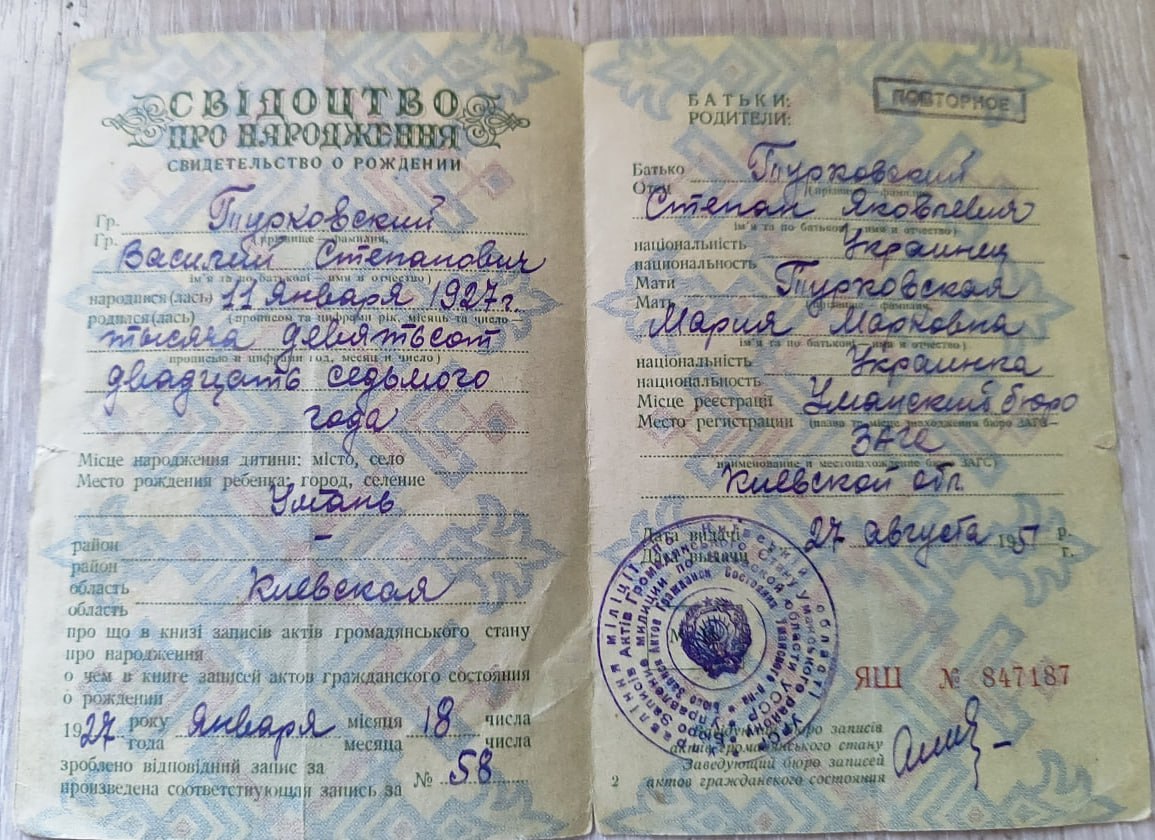 СВІДОЦТВО
ПРО НАРОДЖЕННЯ
СВИДЕТЕЛЬСТВО О РОЖДЕНИИ
Гр. Турковский
Гр.
(прізвище — фамилия,
Василий Степанович
ім'я та по батькові — имя и отчество)
народився(лась) 11 января 1927 г.
родился(лась) (прописом та цифрами рік, місяць та число —
тысяча девятьсот
прописью и цифрами год, месяц и число)
двадцать седьмого
года
Місце народження дитини: місто, село
Место рождения ребенка: город, селение
Умань
район –
район
область Киевская
область
про що в книзі записів актів громадянського стану
про народження
о чем в книге записей актов гражданского состояния
о рождении
1927 року января місяця 18 числа
года месяца числа
зроблено відповідний запис за № 58
произведена соответствующая запись за
БАТЬКИ:
РОДИТЕЛИ:
ПОВТОРНОЕ
Батько Турковский
Отец
(прізвище — фамилия,
Степан Яковлевич
ім'я та по батькові — имя и отчество)
національність Украинец
национальность
Мати Турковская
Мать
(прізвище — фамилия,
Мария Марковна
ім'я та по батькові — имя и отчество)
національність Украинка
национальность
Місце реєстрації Уманский бюро
Место регистрации (назва та місце знаходження бюро ЗАГС —
ЗАГС
наименование и местонахождение бюро ЗАГС)
Киевской обл.
Дата видачі 27 августа 1951 р.
Дата выдачи г.
М
ЯШ № 847187
Завідуючий бюро записів
актів громадянського стану
Заведующий бюро записей
актов гражданского состояния
2